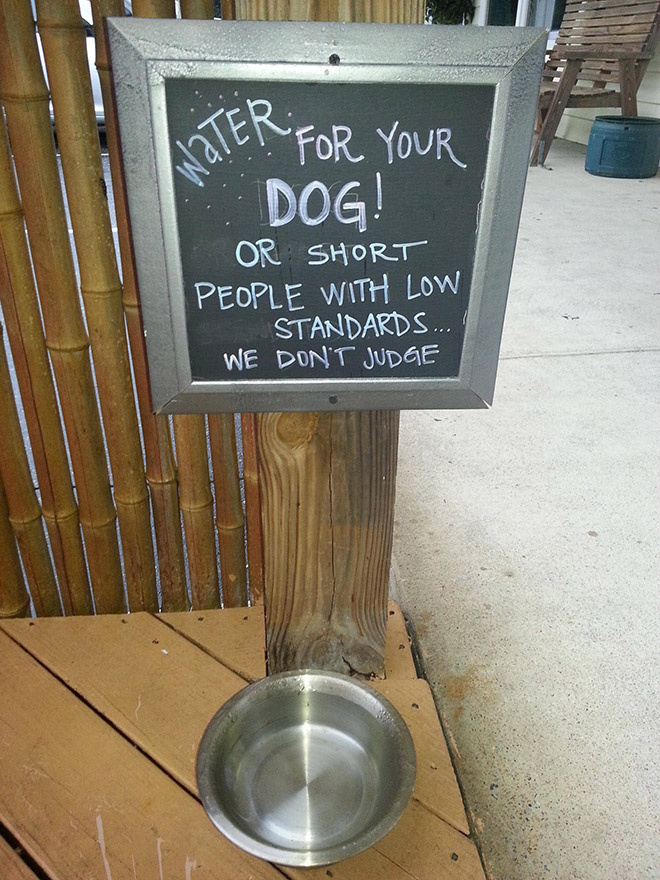 WaTER FOR YOUR
DOG!
OR SHORT
PEOPLE WITH LOW
STANDARDS...
WE DON'T JUDGE